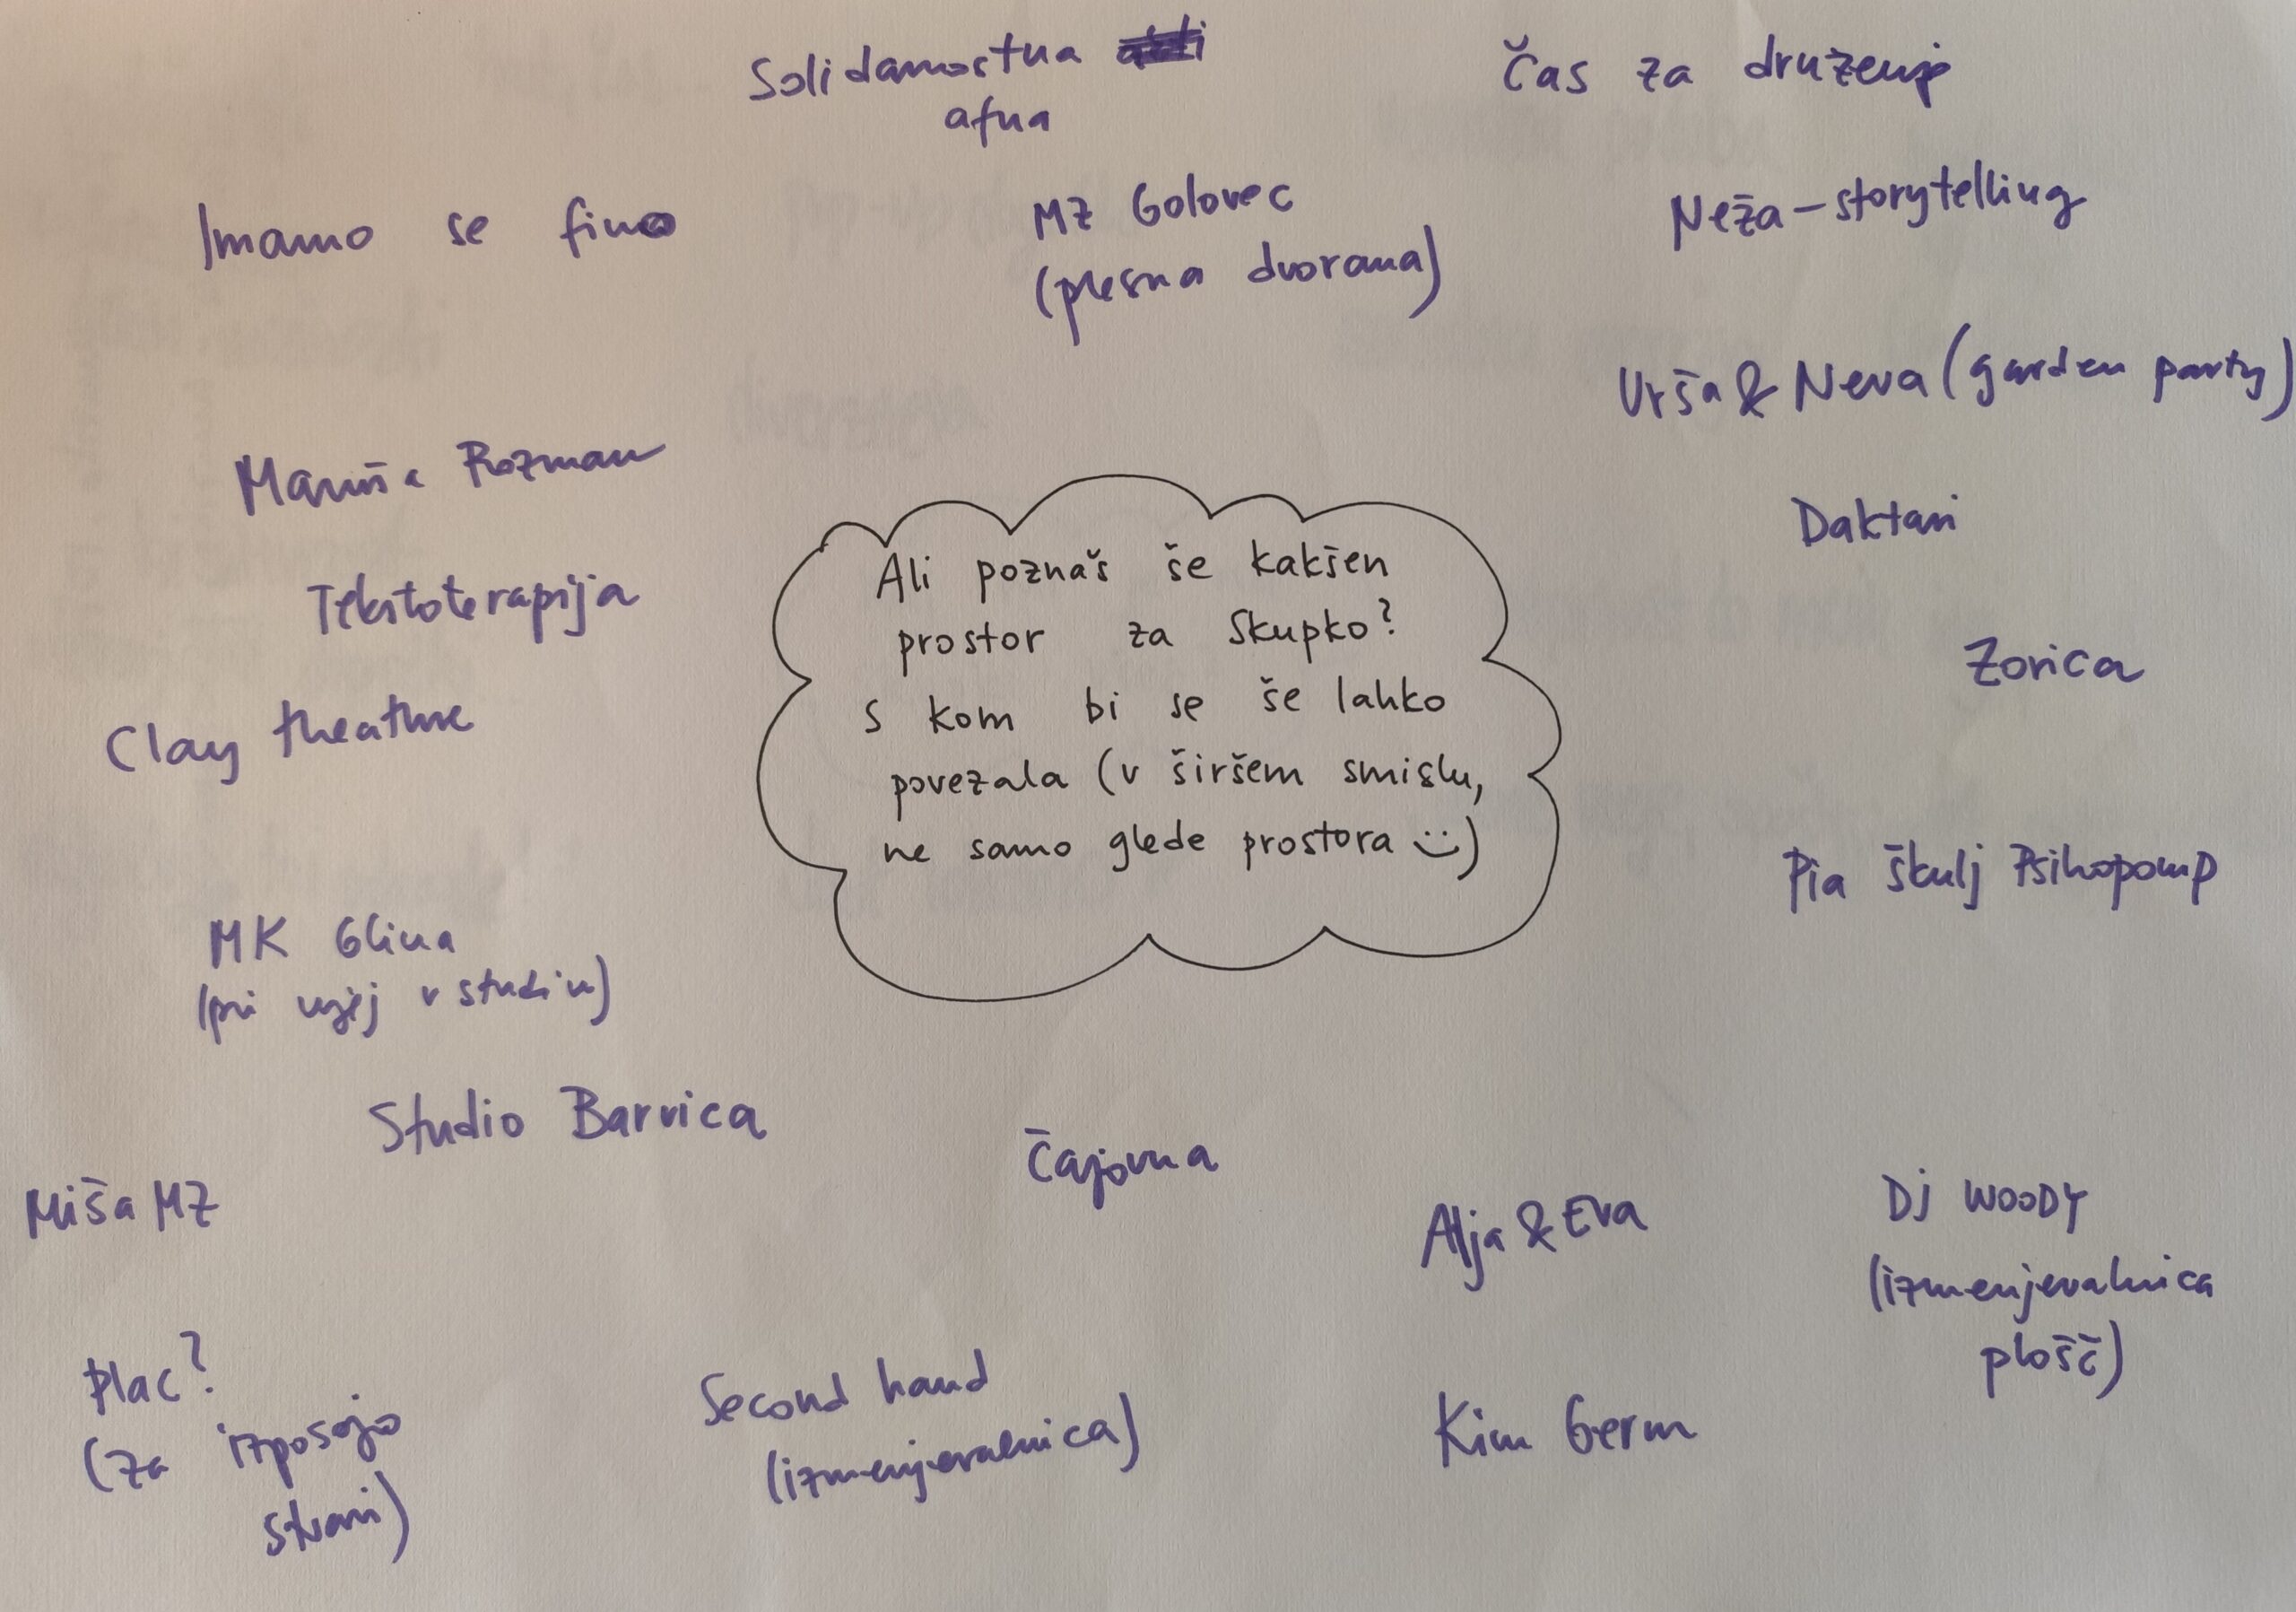 Solidarnostna
afna
Čas za druženje
Imamo se fino
MZ Golovec
(plesna dvorana)
Neža - storytelling
Urša & Neva (garden party)
Maruša Rozman
Daktari
Tekstoterapija
Ali poznaš še kakšen
prostor za Skupko?
S kom bi se še lahko
povezala (v širšem smislu,
ne samo glede prostora :))
Zorica
Clay theatre
Pia Škulj Psihopomp
MK Glina
(pri njej v studiu)
Studio Barvica
Čajovna
Miša MZ
Alja & Eva
DJ WOODY
(izmenjevalnica
plošč)
Plac?
(za izposojo
stvari)
Second hand
(izmenjevalnica)
Kim Germ